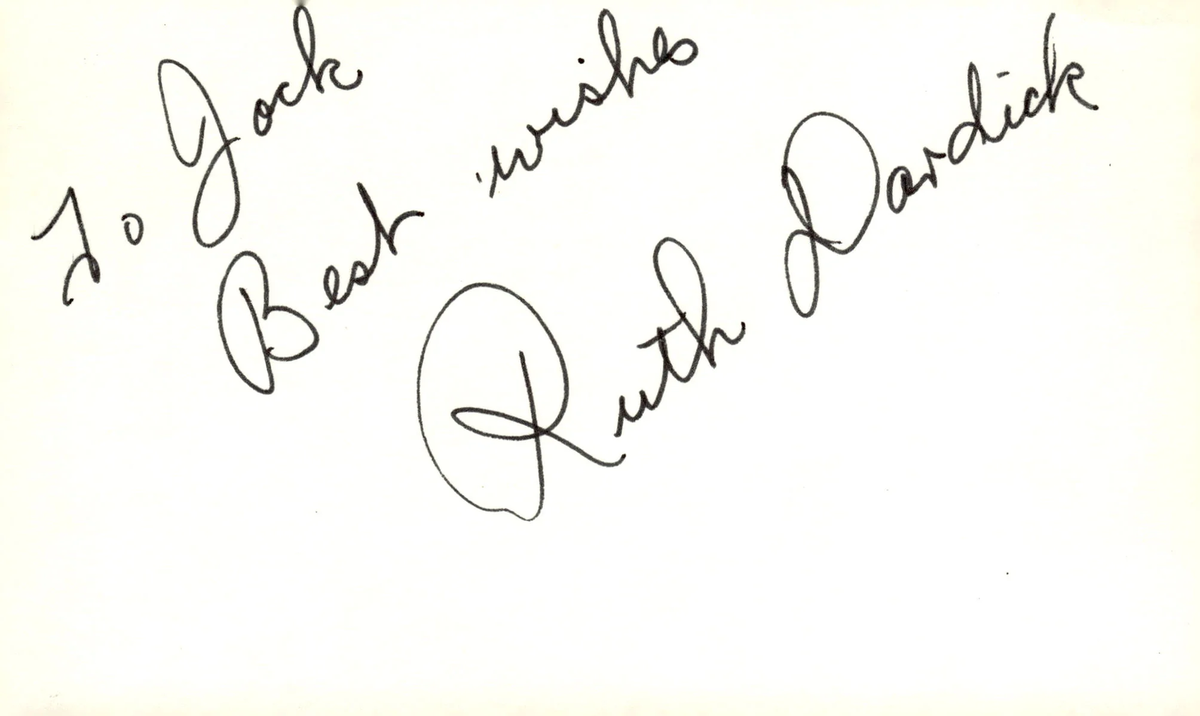 To Jock
Best wishes
Ruth Dardick